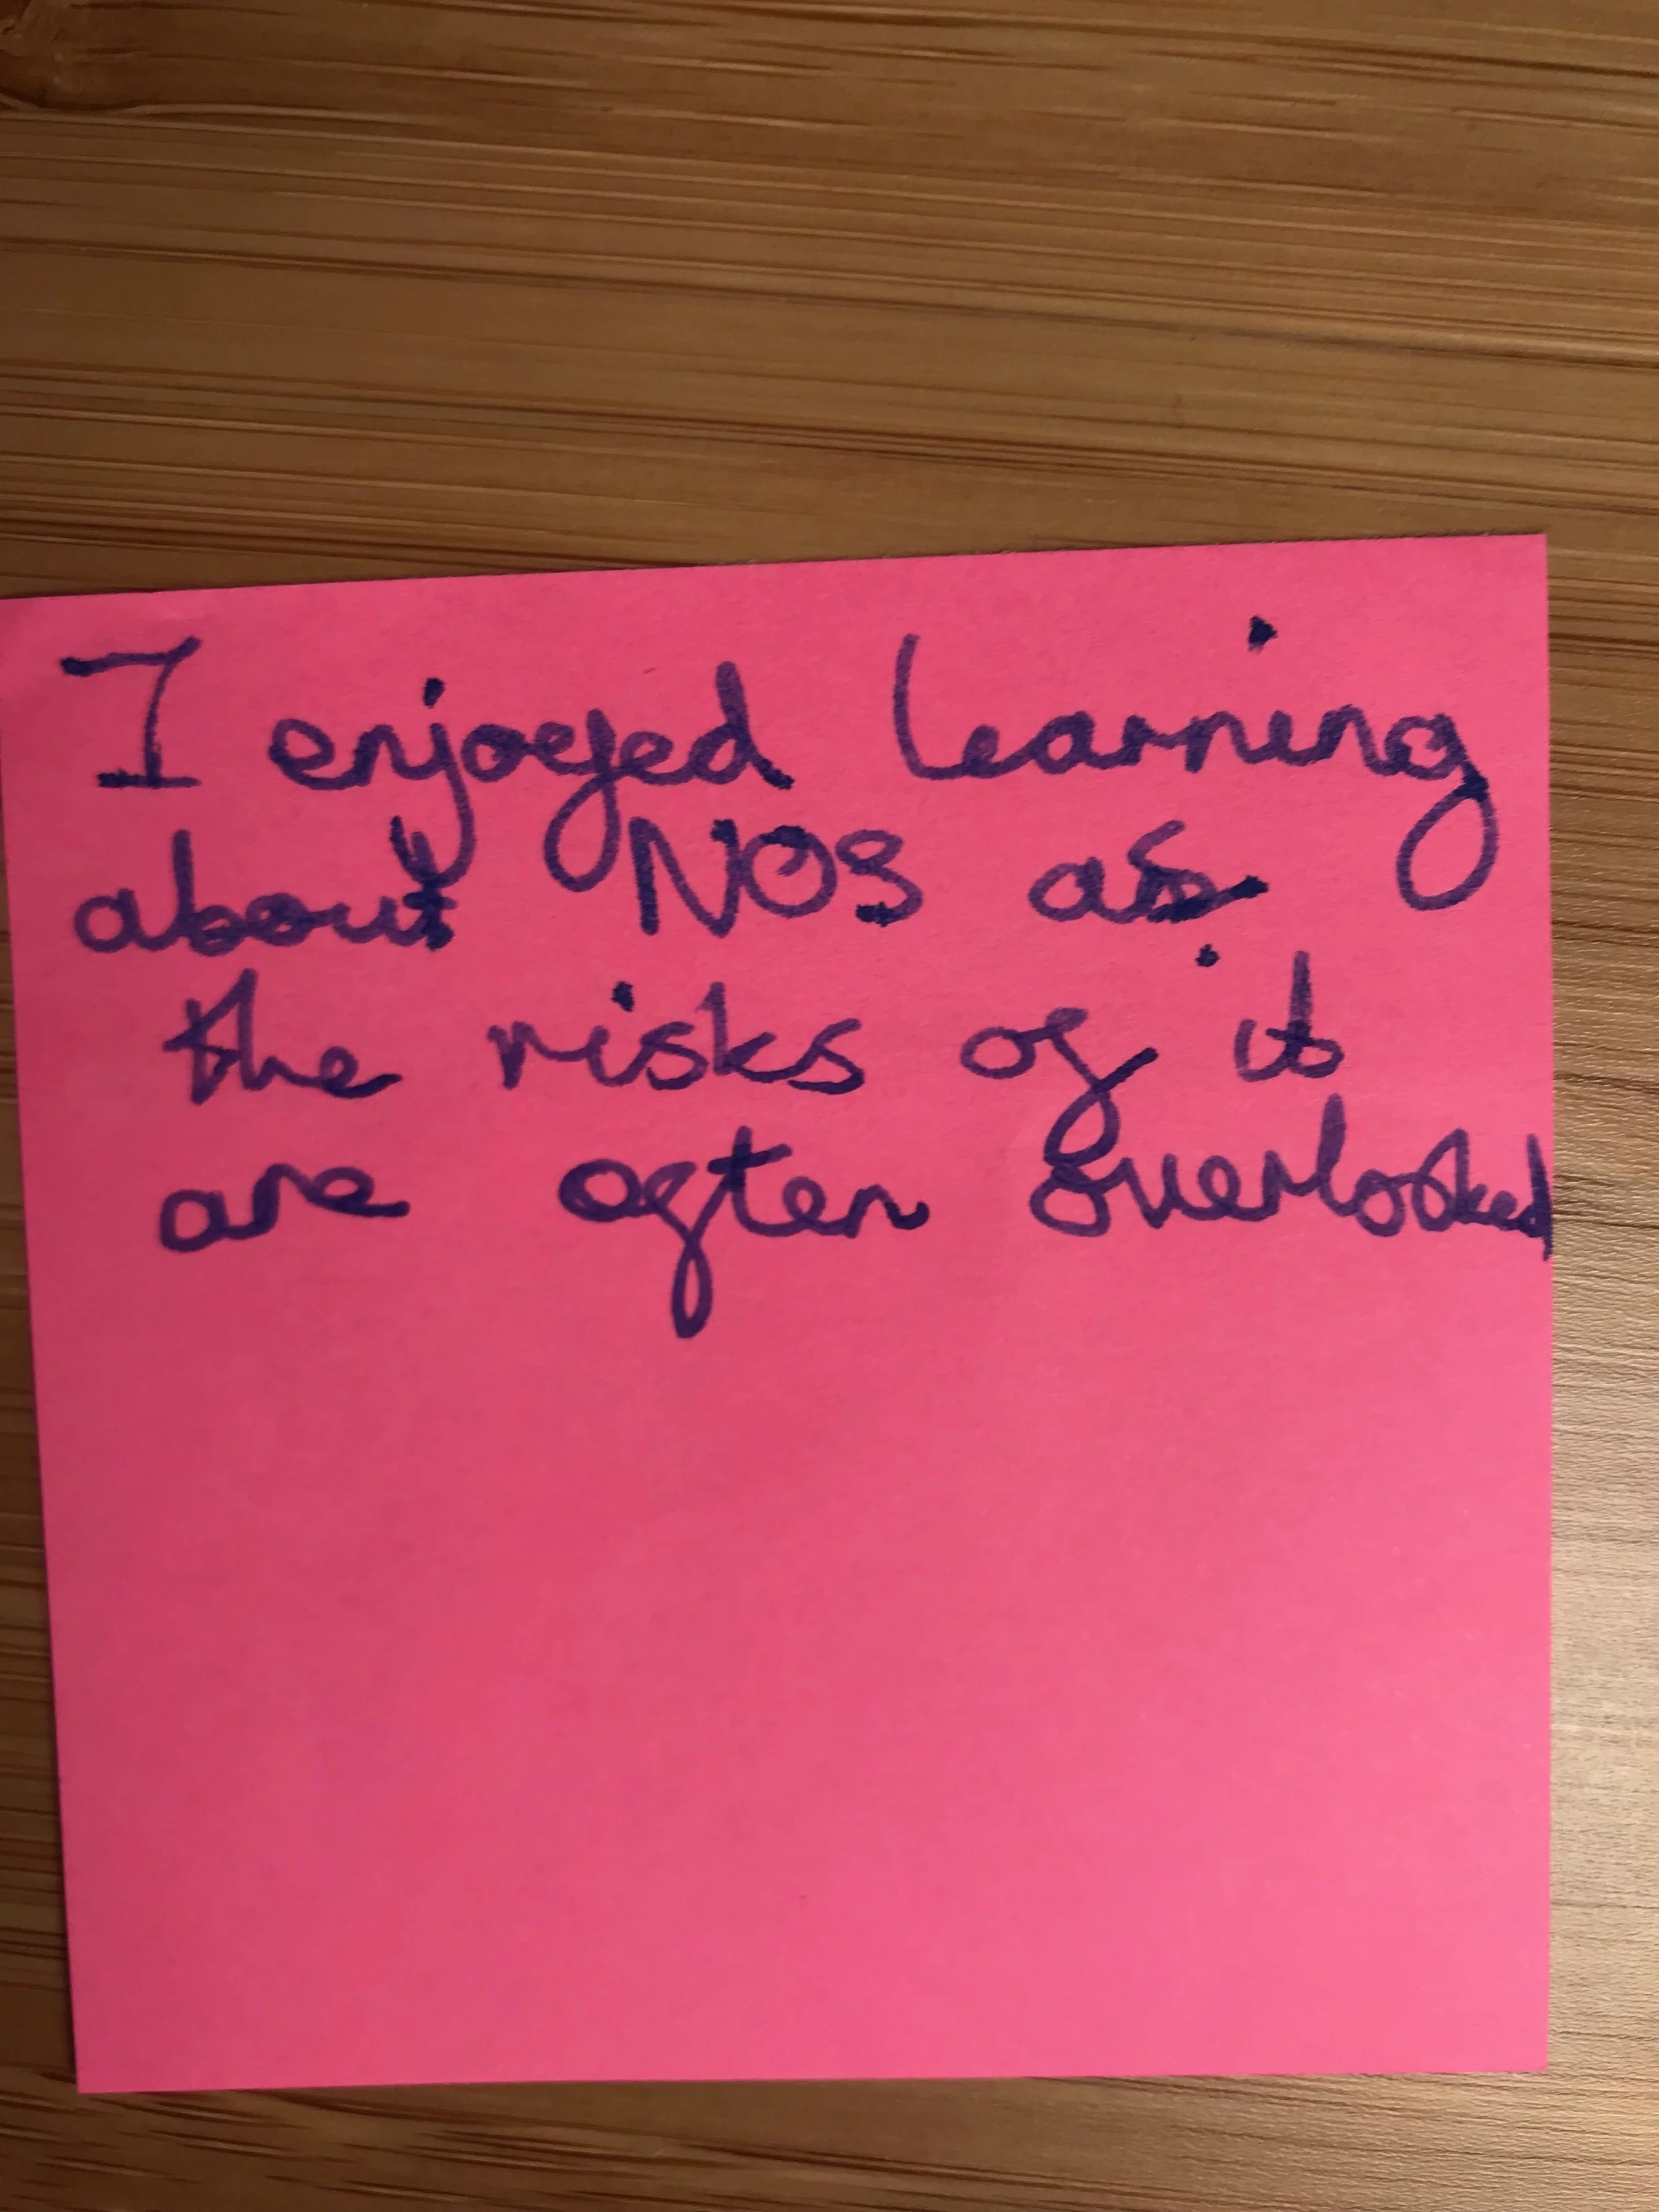 I enjoyed learning
about NOS as
the risks of it
are often overlooked